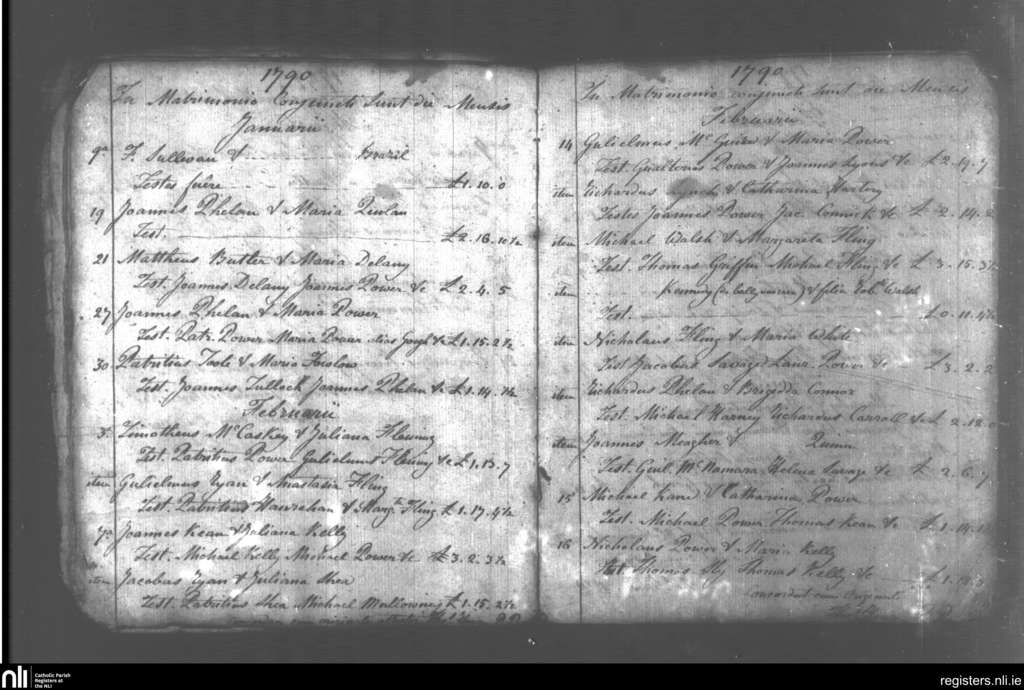 1790
In Matrimonio Conjuncti Sunt die Mensis
Januarii
9a F. Sullivan & Brazil
Testes fuere £1.10.0
19 Joannes Phelan & Maria Quilan
Test. £2.16.10½
21 Mattheus Butler & Maria Delany
Test. Joannes Delany Joannes Power &c £2.4.5
27 Joannes Phelan & Maria Power
Test. Patr. Power Maria Power alias Gough &c £1.15.2½
30 Patritius Toole & Maria
Test. Joannes Tullock Joannes Phelan &c £1.14.1½
Februarii
3. Timotheus McCaskey & Juliana Fleming
Test. Patritius Power Gulielmus Fleming &c £1.13.7
item Gulielmus Ryan & Anastasia Fling
Test. Patritius Hanrehan & Marg.t Fling £1.17.4½
7a Joannes Kean & Juliana Kelly
Test. Michael Kelly Michael Power &c £3.2.3½
item Jacobus Ryan & Juliana Shea
Test. Patritius Shea Michael Mullowney £1.15.2½
1790
In Matrimonio conjuncti sunt die Mensis
Februarii
14 Gulielmus Mc & Maria Power
Test. Power & Joannes Lyons &c £2.19.7
item Richardus Lynch & Catharina Hartery
Testes Joannes Power Jac. Connick &c £2.14.2
item Michael Walsh & Margareta Fling
Test. Thomas Griffin Michael Fling &c £3.15.3½
item & filia Walsh
Test. £0.11.4½
item Nicholaus Fling & Maria White
Test Jacobus Savage Laur. Power &c £3.2.2
item Richardus Phelan & Brigidda Connor
Test. Michael Harney Richardus Carroll &c £2.18.0
item Joannes Meagher & Quinn
Test. Guil. McNamara Helena Savage &c £2.6.7
15 Michael Kane & Catharina Power
Test. Michael Power Thomas Kean &c £1.14.
16 Nicholaus Power & Maria Kelly
Test Thomas Thomas Kelly &c £1.
concordat cum Originali
nli
Catholic Parish
Registers at
the NLI
registers.nli.ie